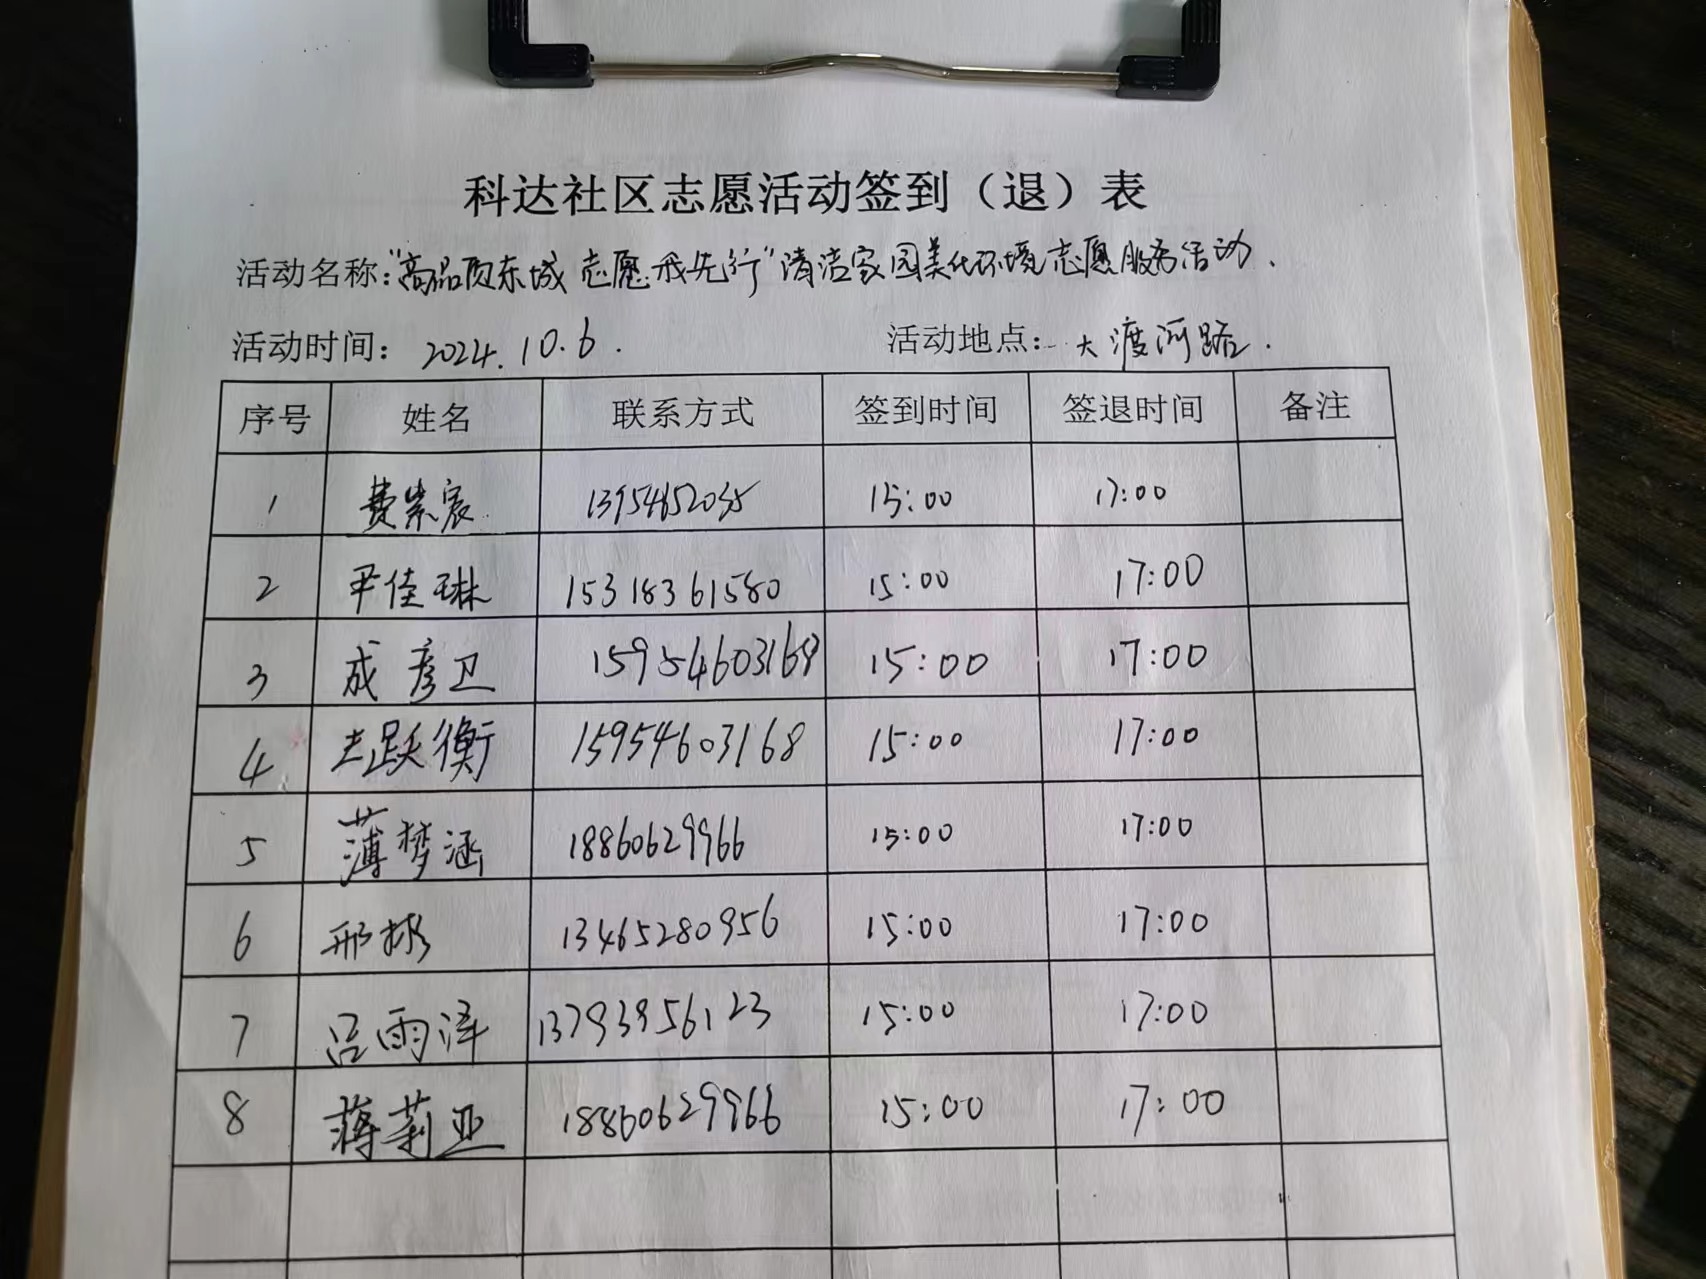 科达社区志愿活动签到（退）表
活动名称:“高品质东城 志愿我先行”清洁家园美化环境志愿服务活动.
活动时间: 2024.10.6. 活动地点: 大渡河路.
序号 姓名 联系方式 签到时间 签退时间 备注
1 费紫宸 13954652035 15:00 17:00
2 尹佳琳 15318361580 15:00 17:00
3 成彦卫 15954603168 15:00 17:00
4 跃衡 15954603168 15:00 17:00
5 薄梦涵 18860629966 15:00 17:00
6 邢彬 13465280956 15:00 17:00
7 吕雨泽 13793956123 15:00 17:00
8 蒋莉亚 18860629966 15:00 17:00